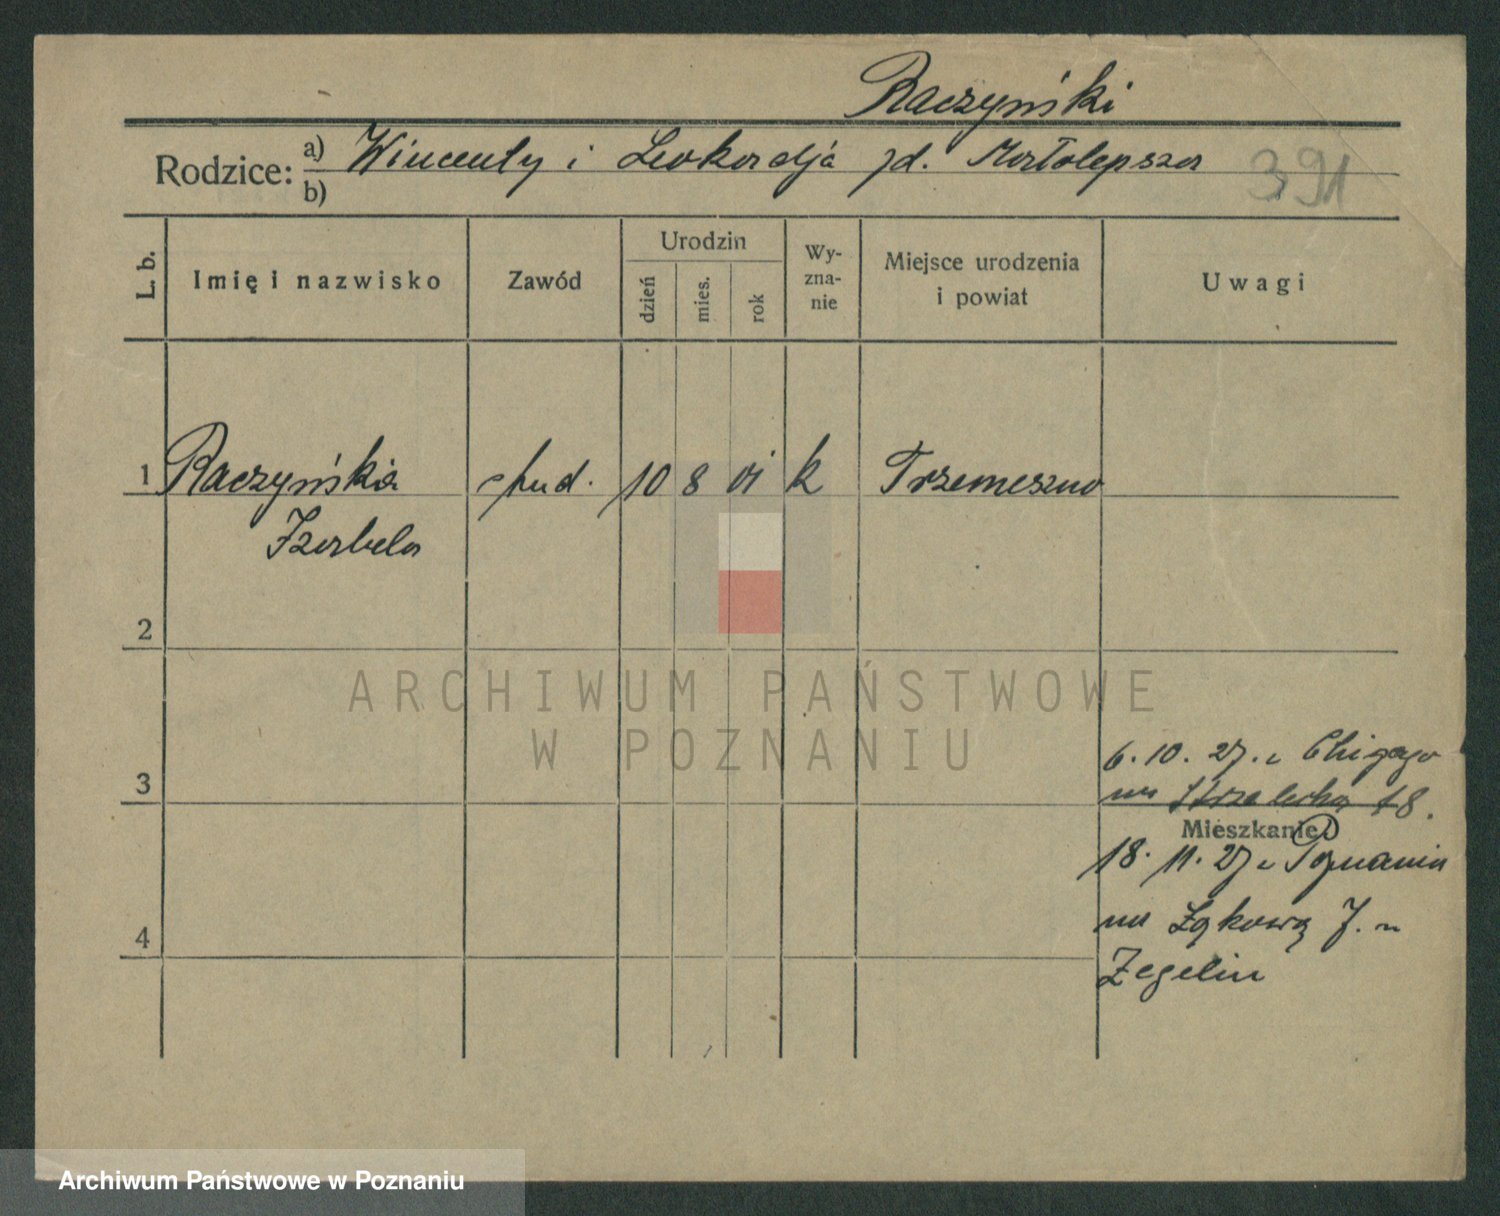 Raczyński
Rodzice: a) Wincenty i Leokordja zd. Małolepsza 391
b)
L. b. Imię i nazwisko Zawód Urodzin dzień mies. rok Wy-zna-nie Miejsce urodzenia i powiat Uwagi
1 Raczyńska stud. 10 8 01 k Trzemeszno
Izabela
2
ARCHIWUM PAŃSTWOWE
W POZNANIU
6. 10. 27. z Chigago
3 na Strzelecką 18.
Mieszkanie
18. 11. 27 z Poznania
4 na Łąkową 7. u
Zegelin
Archiwum Państwowe w Poznaniu